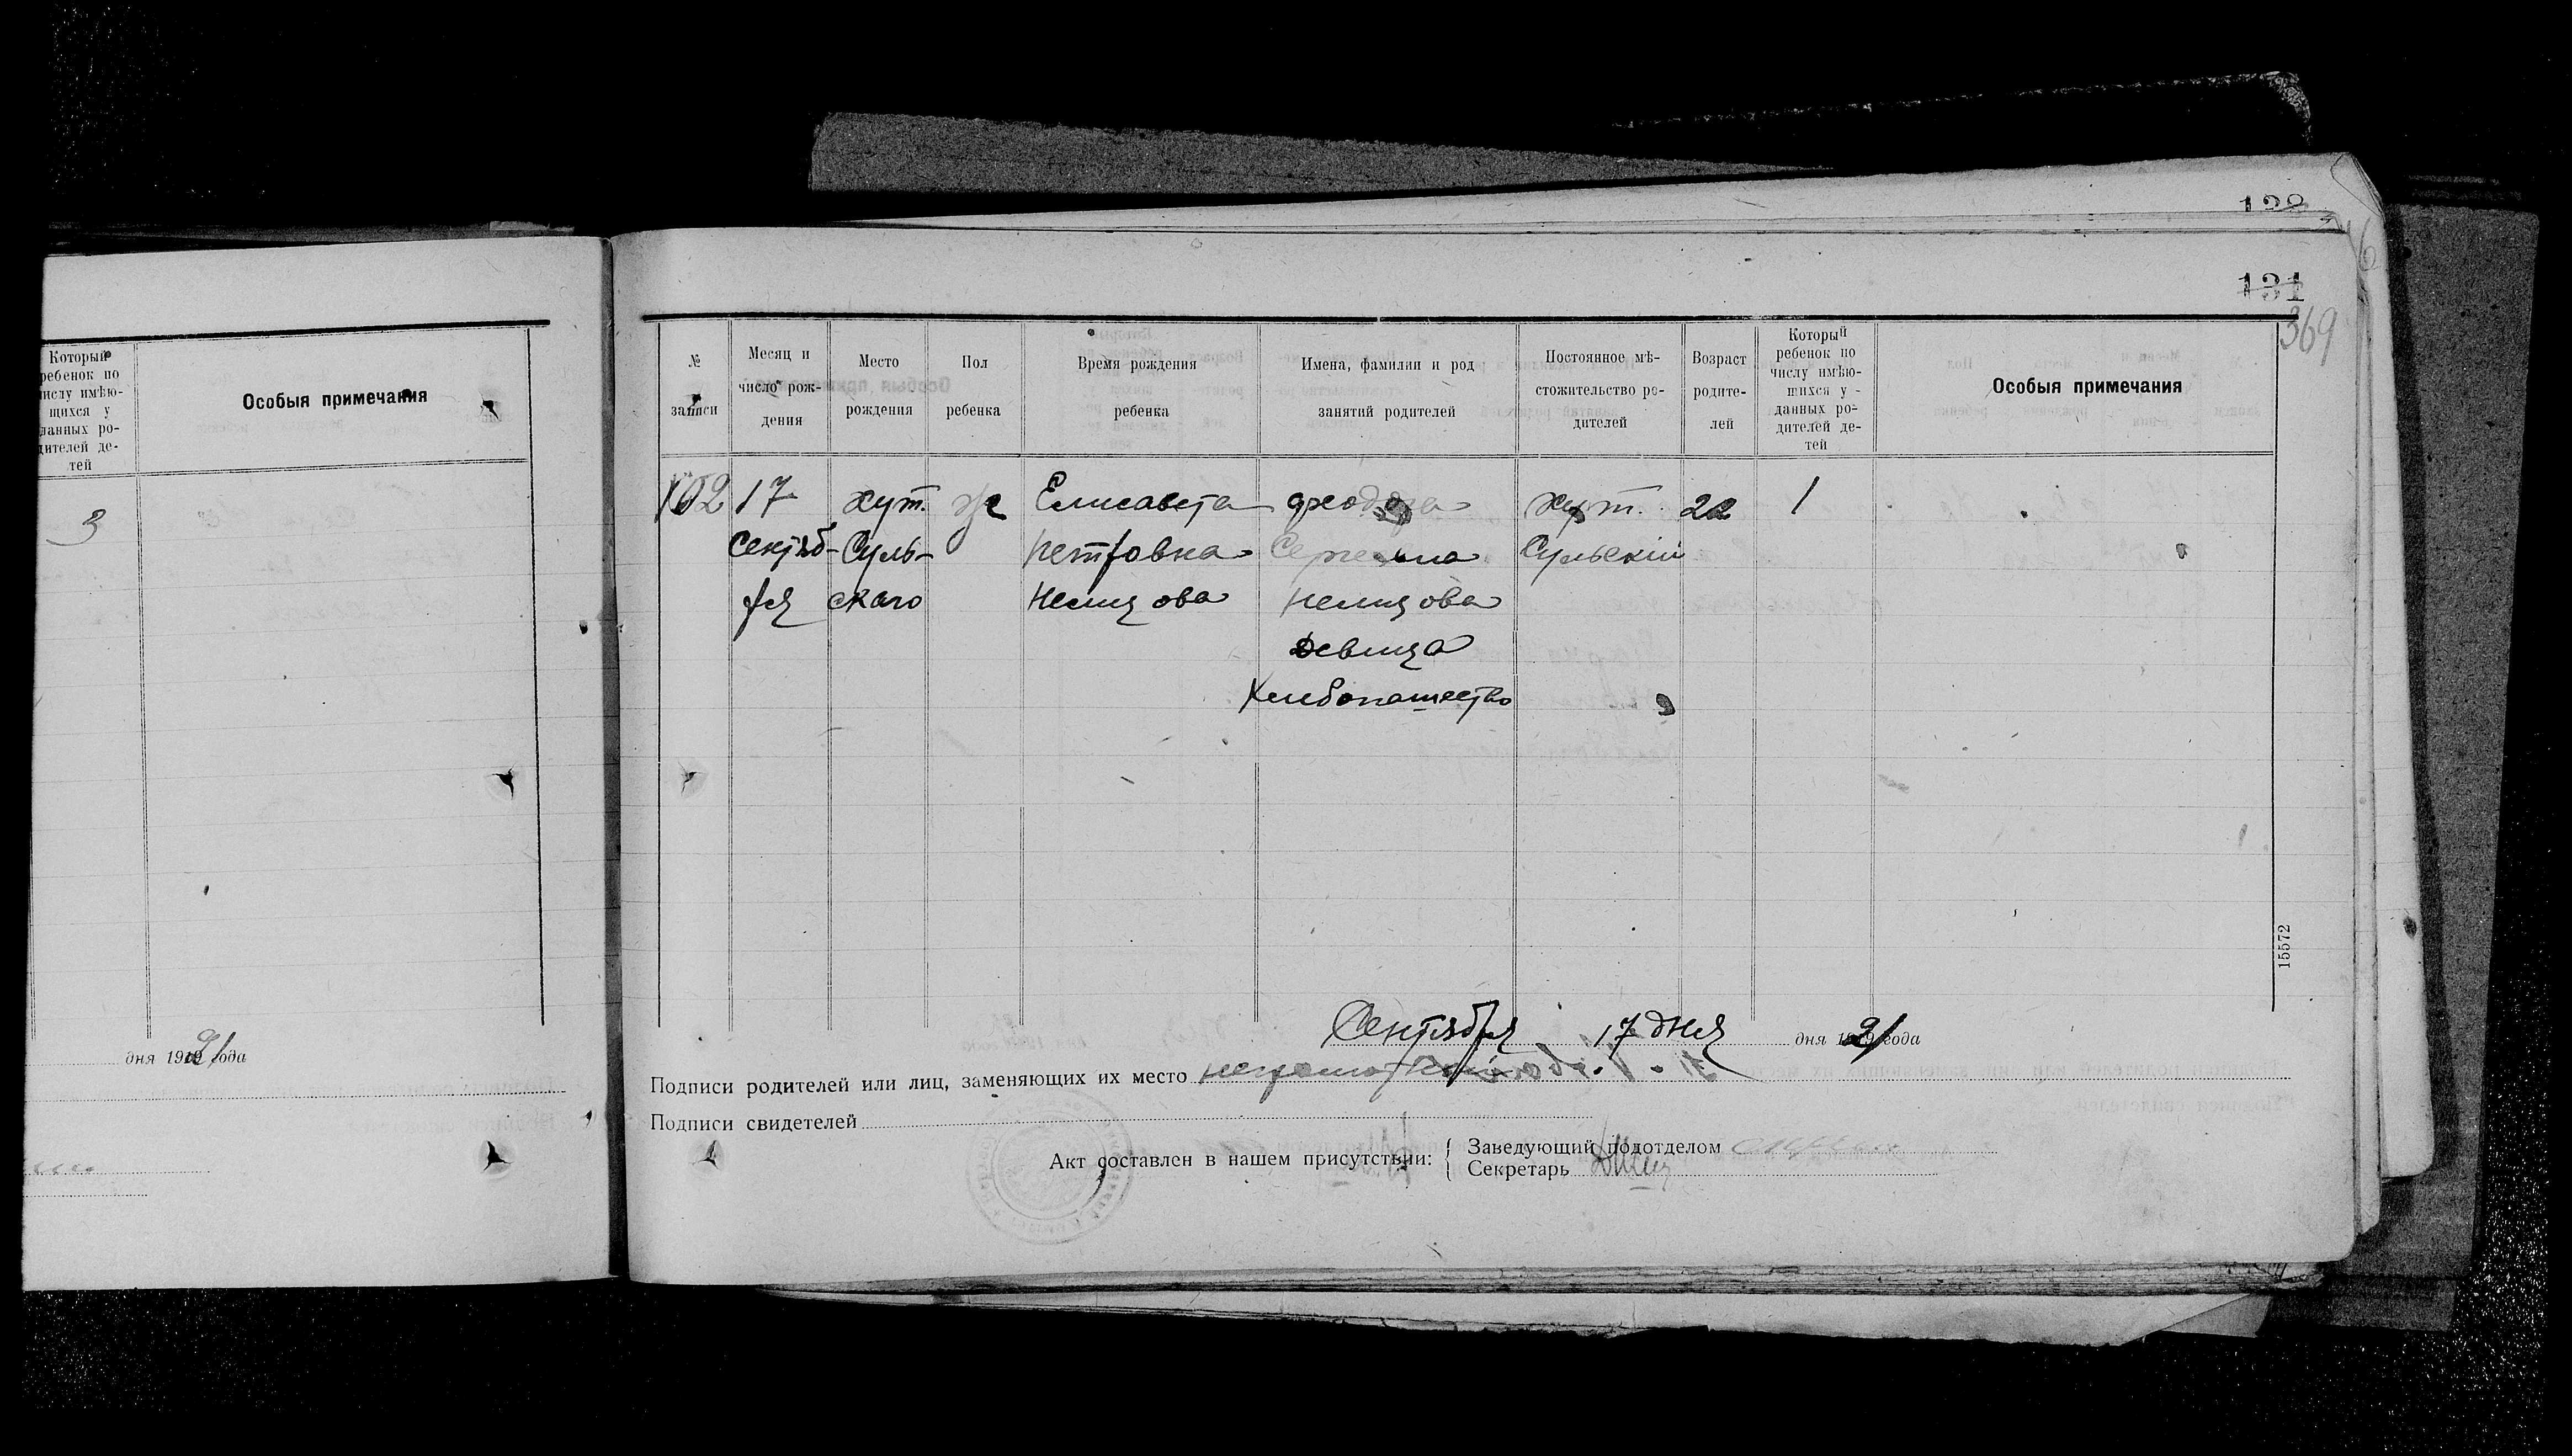 128
131
369
Который
ребенок по
числу имѣю-
щихся у
данных ро-
дителей де-
тей
Особыя примечания
3
дня 1921 года
№
записи
Месяц и
число рож-
дения
Место
рождения
Пол
ребенка
Время рождения
ребенка
Имена, фамилии и род
занятий родителей
Постоянное мѣ-
стожительство ро-
дителей
Возраст
родите-
лей
Который
ребенок по
числу имѣю-
щихся у
данных ро-
дителей де-
тей
Особыя примечания
102 17 хут. ж Елисавета хут. 22 1
Сентяб- Суль- Петровна Сергеевна Сульский
ря скаго Немцова Немцова
девица
Хлебопашество
15572
Сентября 17 дня дня 1921 года
Подписи родителей или лиц, заменяющих их место
Подписи свидетелей
Акт составлен в нашем присутствии:
Заведующий подотделом
Секретарь